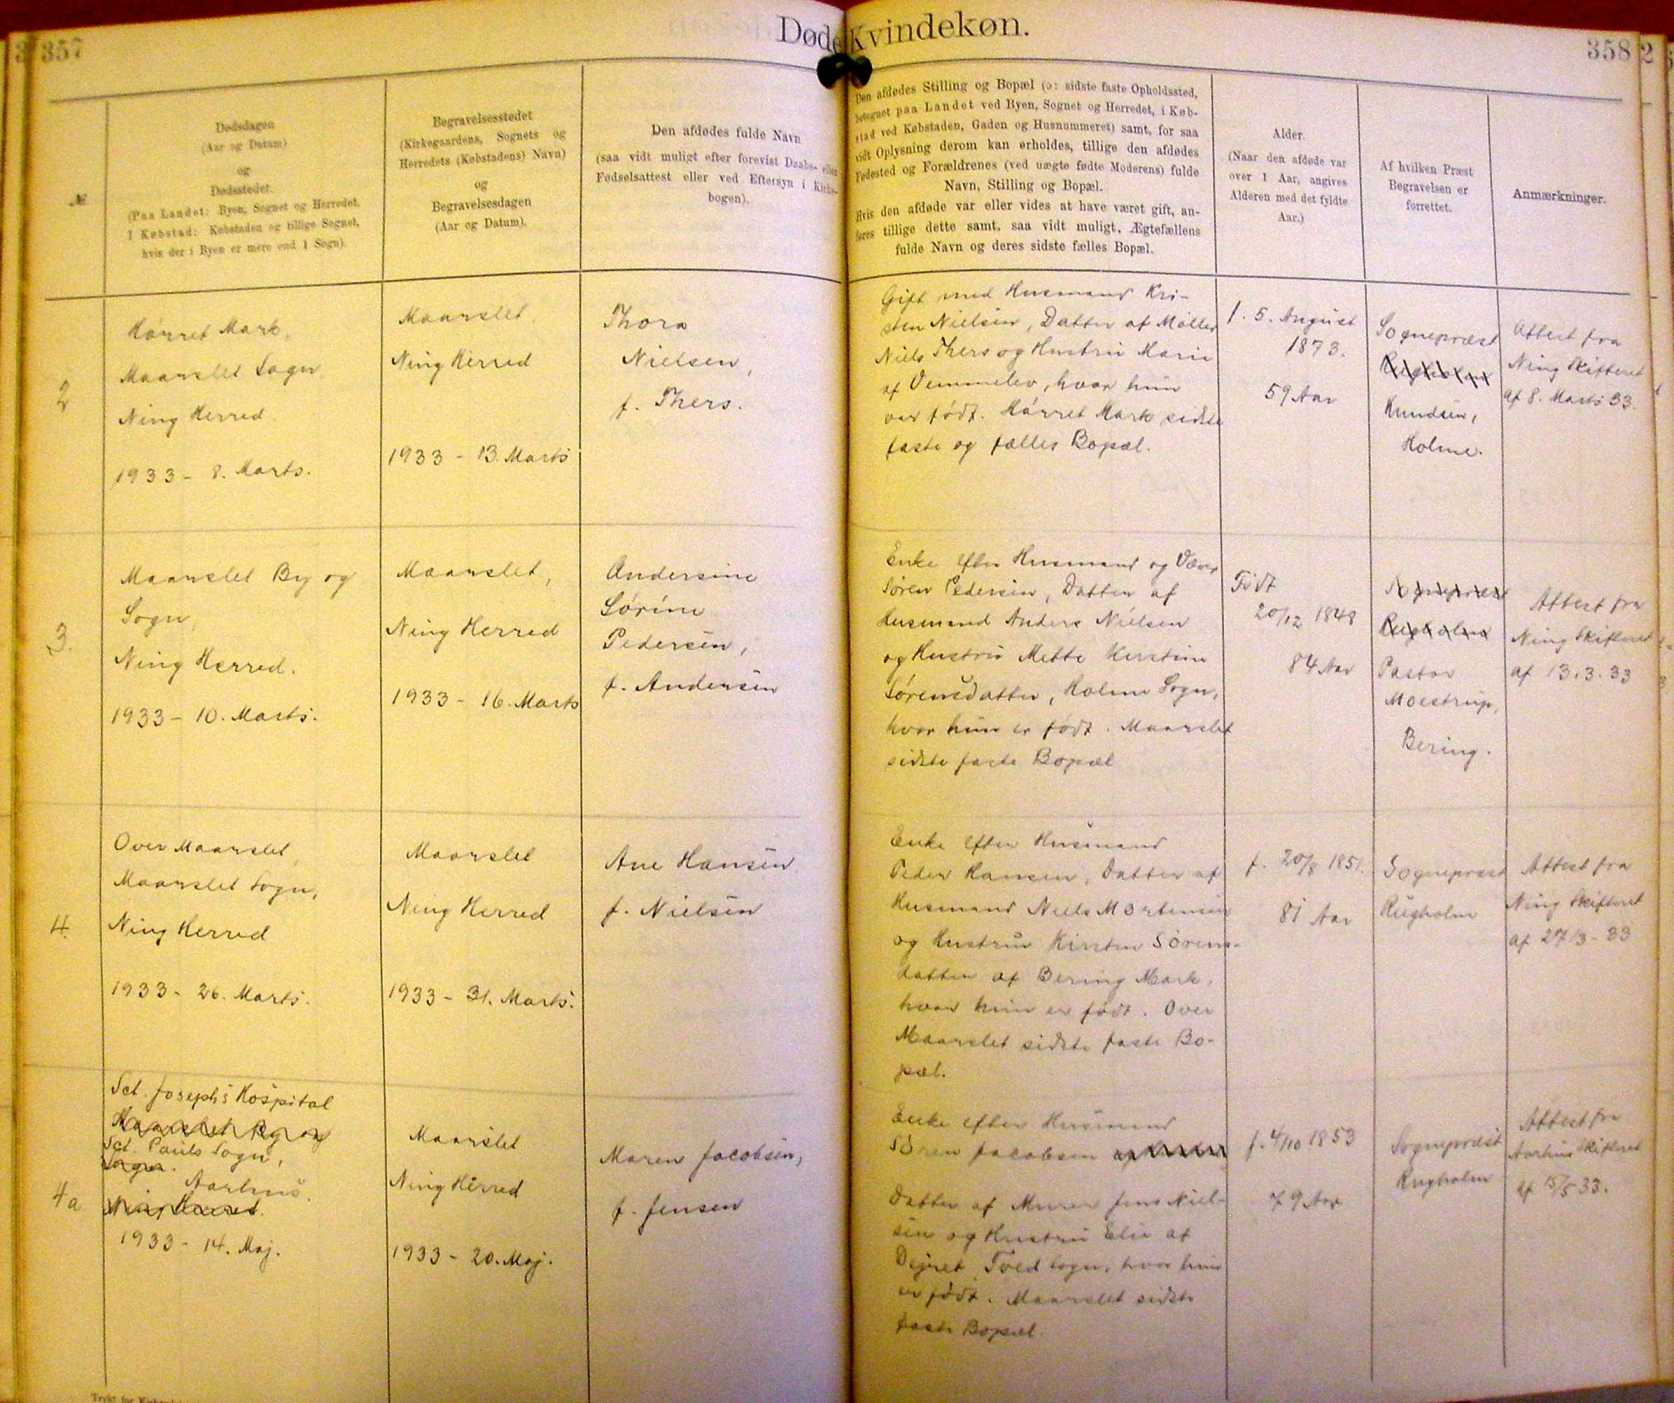 357
Døde Kvindekøn.
358
№
Dødsdagen
(Aar og Datum)
og
Dødsstedet.
(Paa Landet: Byen, Sognet og Herredet.
I Købstad: Købstaden og tillige Sognet,
hvis der i Byen er mere end 1 Sogn).
Begravelsesstedet
(Kirkegaardens, Sognets og
Herredets (Købstadens) Navn)
og
Begravelsesdagen
(Aar og Datum).
Den afdødes fulde Navn
(saa vidt muligt efter forevist Daabs- eller
Fødselsattest eller ved Eftersyn i Kirke-
bogen).
Den afdødes Stilling og Bopæl (ɔ: sidste faste Opholdssted,
betegnet paa Landet ved Byen, Sognet og Herredet, i Køb-
stad ved Købstaden, Gaden og Husnummeret) samt, for saa
vidt Oplysning derom kan erholdes, tillige den afdødes
Fødested og Forældrenes (ved uægte fødte Moderens) fulde
Navn, Stilling og Bopæl.
Hvis den afdøde var eller vides at have været gift, an-
føres tillige dette samt, saa vidt muligt, Ægtefællens
fulde Navn og deres sidste fælles Bopæl.
Alder.
(Naar den afdøde var
over 1 Aar, angives
Alderen med det fyldte
Aar.)
Af hvilken Præst
Begravelsen er
forrettet.
Anmærkninger.
2
Hørret Mark,
Maarslet Sogn
Ning Herred
1933 - 8. Marts.
Maarslet,
Ning Herred
1933 - 13. Marts
Thora
Nielsen,
f. Thers.
Gift med Husmand Kri-
sten Nielsen, Datter af Møller
Niels Thers og Hustru Marie
af Vemmelev, hvor hun
var født. Hørret Mark sidste
faste og fælles Bopæl.
f. 5. August
1873.
59 Aar
Sognepræst
Rugholm
Knudsen,
Holme.
Attest fra
Ning Skifteret
af 8. Marts 33.
3.
Maarslet By og
Sogn,
Ning Herred.
1933 - 10. Marts.
Maarslet,
Ning Herred
1933 - 16. Marts
Andersine
Sørine
Pedersen,
f. Andersen
Enke efter Husmand og Væver
Søren Pedersen, Datter af
Husmand Anders Nielsen
og Hustru Mette Kirstine
Sørensdatter, Holme Sogn,
hvor hun er født. Maarslet
sidste faste Bopæl
Født
20/12 1848
84 Aar
Sognepræst
Rugholm
Pastor
Moestrup,
Bering.
Attest fra
Ning Skifteret
af 13.3.33
4.
Over Maarslet,
Maarslet Sogn,
Ning Herred
1933 - 26. Marts.
Maarslet
Ning Herred
1933 - 31. Marts.
Ane Hansen
f. Nielsen
Enke efter Husmand
Peder Hansen, Datter af
Husmand Niels Mortensen
og Hustru Kirsten Sørens-
datter af Bering Mark,
hvor hun er født. Over
Maarslet sidste faste Bo-
pæl.
f. 20/8 1851.
81 Aar
Sognepræst
Rugholm
Attest fra
Ning Skifteret
af 27/3 - 33
4a
Sct. Josephs Hospital
Maarslet By og
Sct. Pauls Sogn,
Sogn.
Aarhus.
Ning Herred.
1933 - 14. Maj.
Maarslet
Ning Herred
1933 - 20. Maj.
Maren Jacobsen,
f. Jensen
Enke efter Husmand
Søren Jacobsen
Datter af Murer Jens Niel-
sen og Hustru Elie af
Dejret, Tved Sogn, hvor hun
er født. Maarslet sidste
faste Bopæl.
f. 4/10 1853
79 Aar
Sognepræst
Rugholm
Attest fra
Aarhus Skifteret
af 15/5 33.